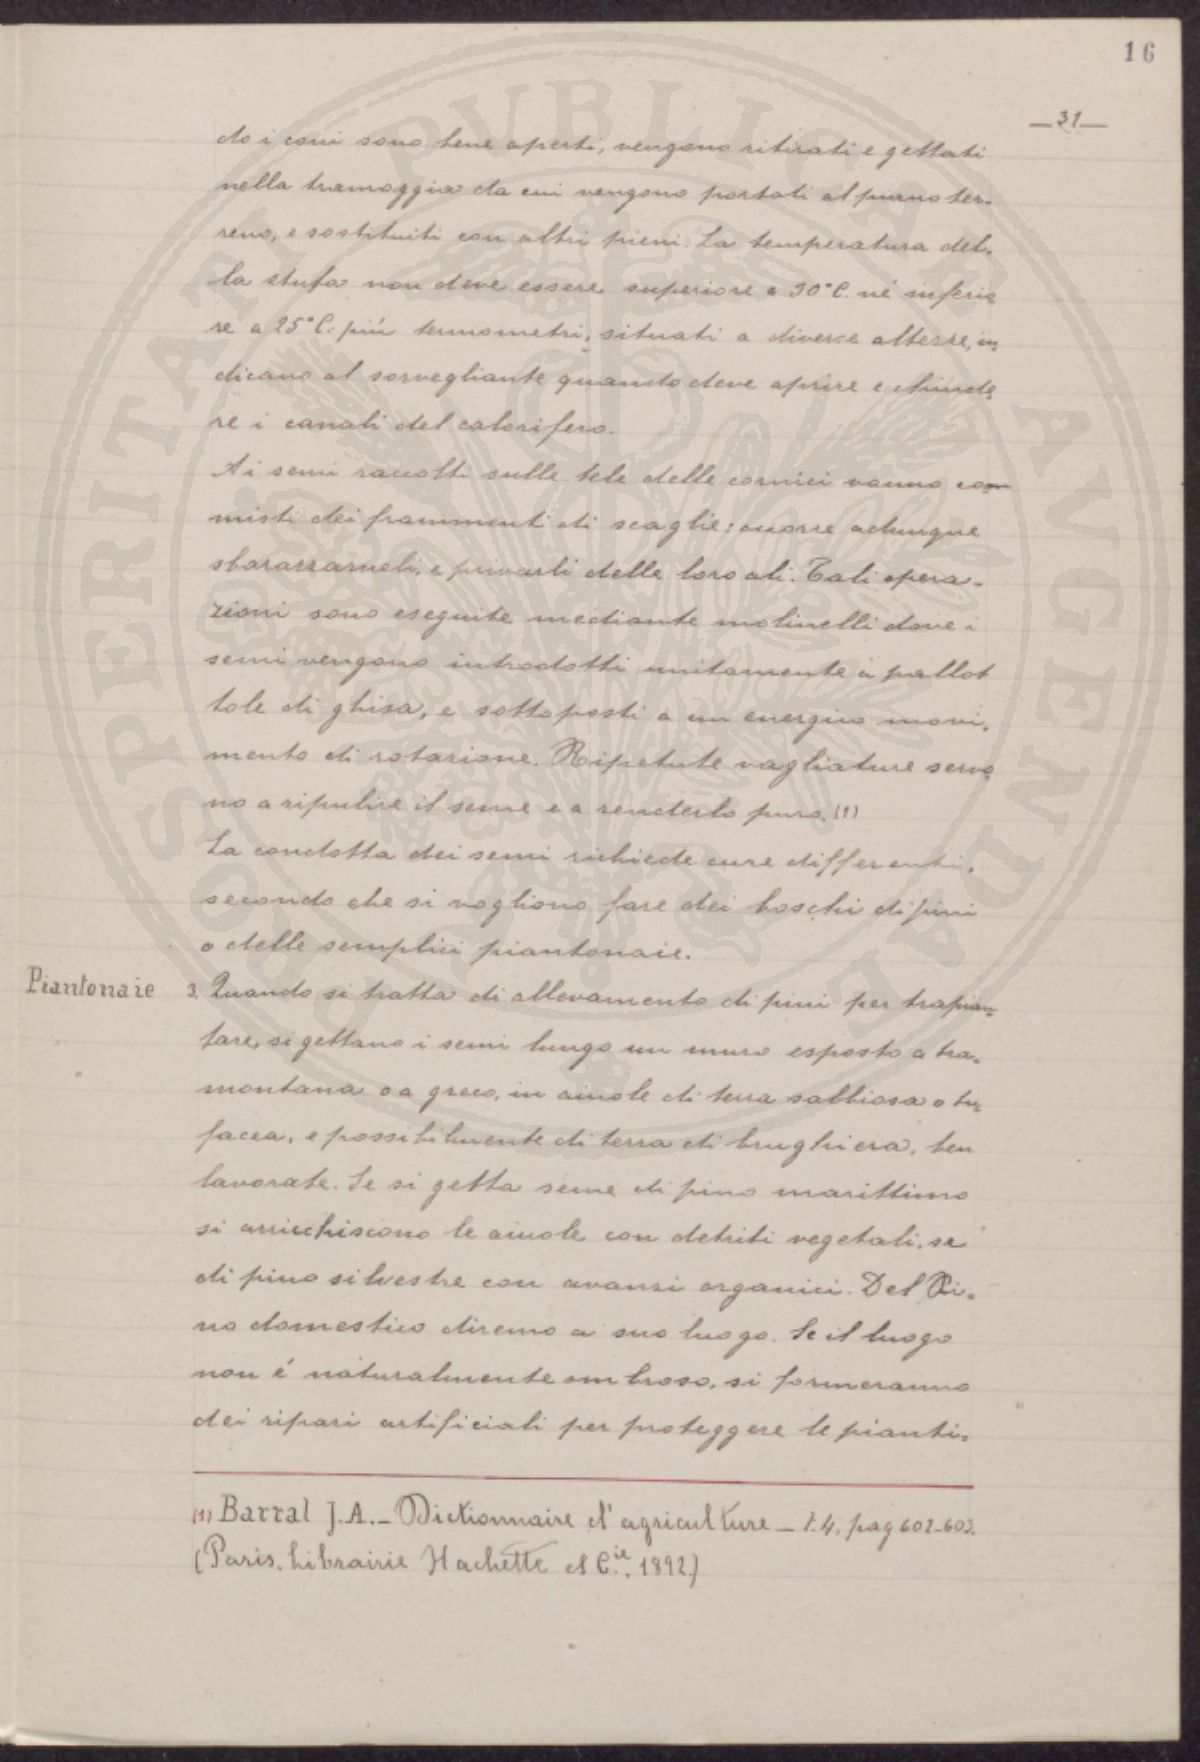 16
— 31 —
do i coni sono bene aperti, vengono ritirati e gettati
nella tramoggia da cui vengono portati al piano ter-
reno, e sostituiti con altri pieni. La temperatura del-
la stufa non deve essere superiore a 30°C. né inferio
re a 25°C: più termometri, situati a diverse altezze, in-
dicano al sorvegliante quando deve aprire e chiude
re i canali del calorifero.
Ai semi raccolti sulle tele delle cornici vanno com
misti dei frammenti di scaglie: occorre adunque
sbarazzarneli, e privarli delle loro ali. Tali opera-
zioni sono eseguite mediante molinelli dove i
semi vengono introdotti unitamente a pallot
tole di ghisa, e sottoposti a un energico movi-
mento di rotazione. Ripetute vagliature servo
no a ripulire il seme e a renderlo puro. (1)
La condotta dei semi richiede cure differenti,
secondo che si vogliono fare dei boschi di pini
o delle semplici piantonaie.
Piantonaie 3. Quando si tratta di allevamento di pini per trapian-
tare, si gettano i semi lungo un muro esposto a tra-
montana o a greco, in aiuole di terra sabbiosa o tu-
facea, e possibilmente di terra di brughiera, ben
lavorate. Se si getta seme di pino marittimo
si arricchiscono le aiuole con detriti vegetali, se
di pino silvestre con avanzi organici. Del Pi-
no domestico diremo a suo luogo. Se il luogo
non é naturalmente ombroso, si formeranno
dei ripari artificiali per proteggere le pianti-
(1) Barral J.A. - Dictionnaire d'agriculture - t. 4, pag 602-603.
(Paris, Librairie Hachette et C.ie, 1892)
SPERITATI PVBLICAE AVGENDAE